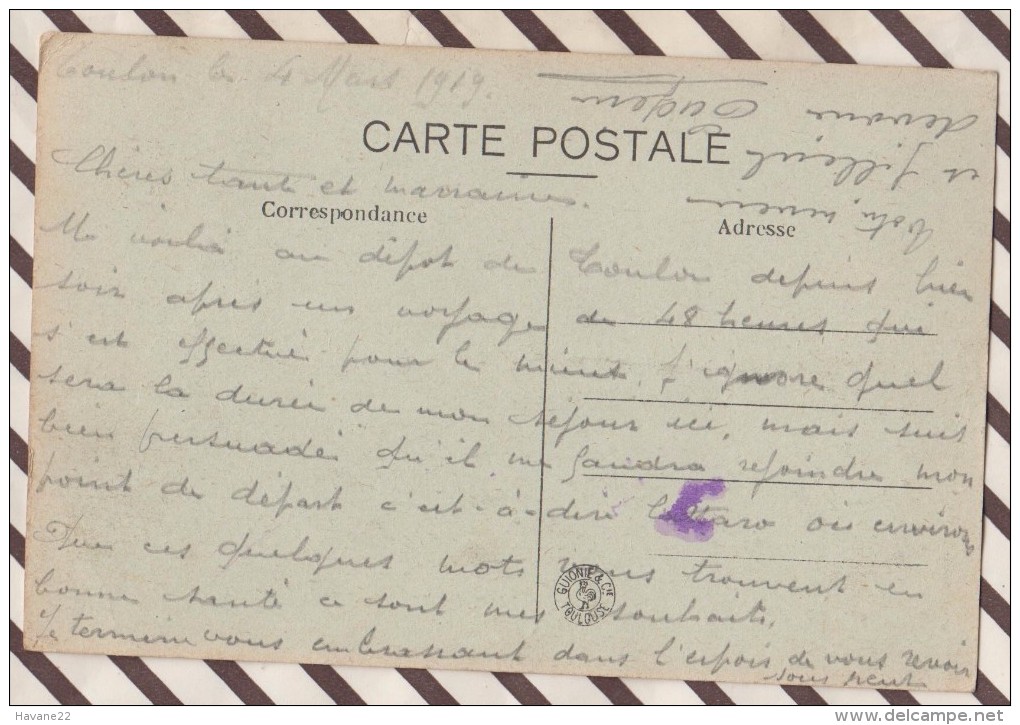 Toulon le 4 Mars 1919.
CARTE POSTALE
Chères tante et marraine.
Correspondance
Adresse
Me voilà au dépot de Toulon depuis hier
soir après un voyage de 48 heures qui
s'est effectué pour le mieux. J'ignore quel
sera la durée de mon séjour ici, mais suis
bien persuadé qu'il me faudra rejoindre mon
point de départ c'est-à-dire Cattaro ou environs
Que ces quelques mots vous trouvent en
bonne santé ce sont mes souhaits.
Je termine vous embrassant dans l'espoir de vous revoir
sous peu
Votre neveu
et filleul
dévoué
Eugène
GUIONIE & CIE
TOULOUSE
Havane22
www.delcampe.net